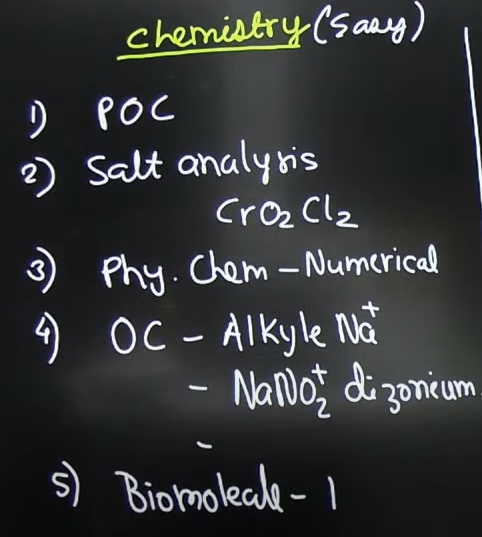 Chemistry (Easy)
1) POC
2) Salt analysis
CrO2Cl2
3) Phy. Chem - Numerical
4) OC - Alkyle Na+
- NaNO2+ dizonium
-
5) Biomolecule - 1